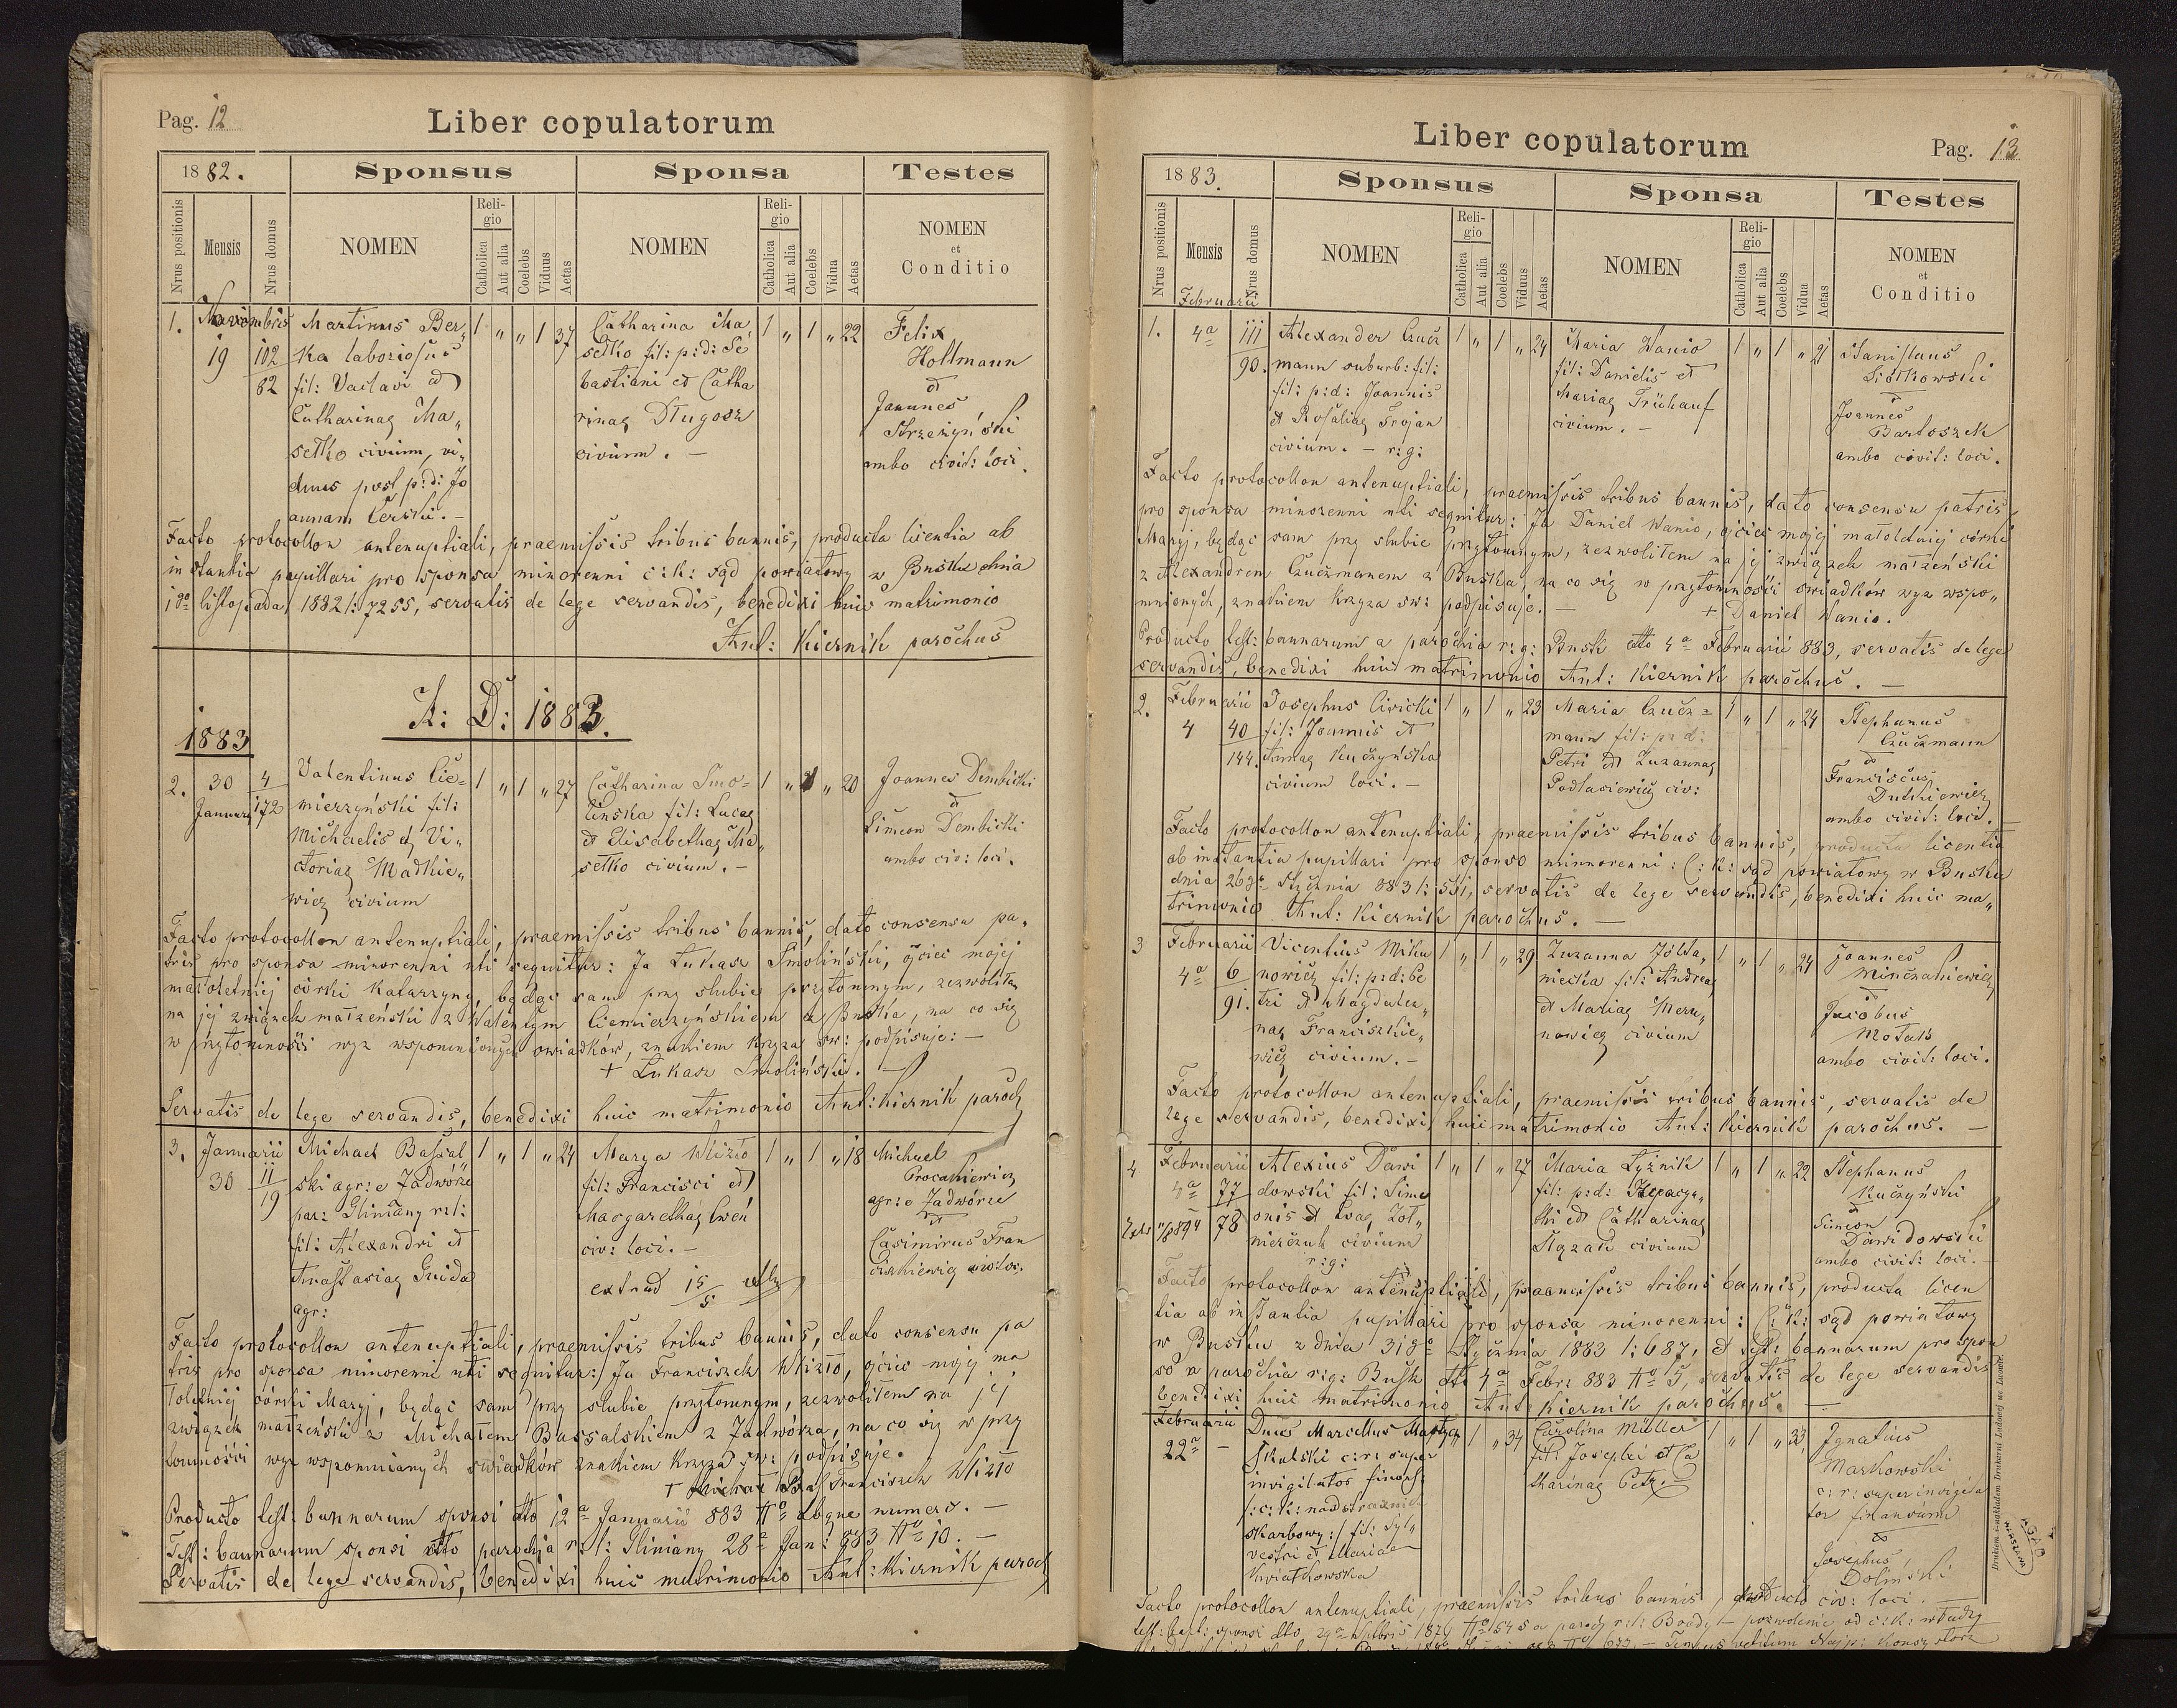 Pag. 12
Liber copulatorum
1882.
Sponsus
Sponsa
Testes
Nrus positionis
Mensis
Nrus domus
NOMEN
Religio
Catholica
Aut alia
Coelebs
Viduus
Aetas
NOMEN
Religio
Catholica
Aut alia
Coelebs
Vidua
Aetas
NOMEN
et
Conditio
1.
Novembris
19
102
82
Martinus Ber„
ka laboriosus
fil: Vaclavi et
Catharinae Ma„
setko civium, vi„
duus post p: d: Jo
annam Cerski. –
1 „ „ 1 37
Catharina Ma„
setko fil: p: d: Se
bastiani et Catha
rinae Długosz
civium. –
1 „ 1 „ 22
Felix
Holtmann
et
Joannes
Strzeżyński
ambo civit: loci.
Facto protocollon antenuptiali, praemissis tribus bannis, producta licentia ab
instantia pupillari pro sponsa minorenni c: k: sąd powiatowy w Busku dnia
18o listopada 1882 l: 7255, servatis de lege servandis, benedixi huic matrimonio
Ant: Kiernik parochus
A: D: 1883.
1883
2.
30
Januarii
4
172
Valentinus Cie=
mierzyński fil:
Michaelis et Vi„
ctoriae Madkie„
wicz civium
1 „ 1 „ 27
Catharina Smo=
linska fil: Lucae
et Elisabethae Ma„
setko civium. –
1 „ 1 „ 20
Joannes Dembicki
et
Simeon Dembicki
ambo civ: loci.
Facto protocollon antenuptiali, praemissis tribus bannis, dato consensu pa„
tris pro sponsa minorenni uti sequitur: Ja Łukasz Smoliński, ojciec mojej
małoletniej córki Katarzyny, będąc sam przy slubie przytomnym, zezwoliłem
na jej związek małżeński z Walentym Ciemierzyńskiem z Buska, na co się
w przytomności wyz wspomnionych swiadków, znakiem krzyza sw: podpisuje: –
+ Łukasz Smoliński. –
Servatis de lege servandis, benedixi huic matrimonio Ant: Kiernik paroch
3.
Januarii
30
11
19
Michael Bassal
ski agr: e Zadwórze
par: Gliniany r: l:
fil: Alexandri et
Anastasiae Guida
agr:
1 „ 1 „ 24
Marya Klizio
fil: Francisci et
Margarethae Cweń
civ: loci. –
extrad 15/5
1 „ 1 „ 18
Michael
Procakiewicz
agr: e Zadwórze
et
Casimirus Fran
ciszkiewicz civ: loc.
Facto protocollon antenuptiali, praemissis tribus bannis, dato consensu pa
tris pro sponsa minorenni uti sequitur: Ja Franciszek Klizio, ojciec mojej ma
łoletniej córki Maryi, będąc sam przy slubie przytomnym, zezwoliłem na jej
związek małżeński z Michałem Bassalskiem z Zadwórza, na co się w przy
tomności wyz wspomnianych swiadków znakiem krzyza sw: podpisuje.
+ Franciszek Klizio
Producto test: bannarum sponsi dto 12a Januarii 883 No absque numero. –
Test: bannarum sponsi dto parochia r: l: Gliniany 28a Jan: 883 No 10. –
Servatis de lege servandis, benedixi huic matrimonio Ant: Kiernik paroch
Liber copulatorum
Pag. 13
1883.
Sponsus
Sponsa
Testes
Nrus positionis
Mensis
Nrus domus
NOMEN
Religio
Catholica
Aut alia
Coelebs
Viduus
Aetas
NOMEN
Religio
Catholica
Aut alia
Coelebs
Vidua
Aetas
NOMEN
et
Conditio
1.
Februarii
4a
111
90.
Alexander Czucz
mann suburb: fil:
fil: p: d: Joannis
et Rosaliae Trojan
civium. – r: g:
1 „ 1 „ 24
Maria Wanio
fil: Danielis et
Mariae Frühauf
civium. –
1 „ 1 „ 21
Stanislaus
Siółkowski
et
Joannes
Bartoszek
ambo civit: loci.
Facto protocollon antenuptiali, praemissis tribus bannis, dato consensu patris
pro sponsa minorenni uti sequitur: Ja Daniel Wanio, ojciec mojej małoletniej córki
Maryi, będąc sam przy slubie przytomnym, zezwoliłem na jej związek małżeński
z Alexandrem Czuczmanem z Buska, na co się w przytomności świadków wyz wspo„
mnionych, znakiem krzyza sw: podpisuje. – + Daniel Wanio.
Producto test: bannarum a parochia r: g: Busk dto 4a Februarii 883, servatis de lege
servandis, benedixi huic matrimonio Ant: Kiernik parochus. –
2.
Februarii
4
40
144.
Josephus Civicki
fil: Joannis et
Annae Kuczyńska
civium loci. –
1 „ 1 „ 23
Maria Czucz=
mann fil: p: d:
Petri et Zuzannae
Podlasiewicz civ:
1 „ 1 „ 24
Stephanus
Czuczmann
et
Franciscus
Dutkiewicz
ambo civit: loci.
Facto protocollon antenuptiali, praemissis tribus bannis, producta licentia
ab instantia pupillari pro sponso minnorenni: C: k: sąd powiatowy w Busku
dnia 26go stycznia 883 l: 551, servatis de lege servandis, benedixi huic ma„
trimonio Ant: Kiernik parochus. –
3
Februarii
4a
6
91.
Vicentius Miku
nowicz fil: p: d: Pe
tri et Magdale„
nae Franciszkie„
wicz civium. –
1 „ 1 „ 29
Zuzanna Żółta„
niecka fil: Andreae
et Mariae Meru„
nowicz civium
1 „ 1 „ 24
Joannes
Minczakiewicz
et
Jacobus
Motak
ambo civit: loci.
Facto protocollon antenuptiali, praemissis tribus bannis, servatis de
lege servandis, benedixi huic matrimonio Ant: Kiernik parochus. –
4
Februarii
4a
77
78
Alexius Dawi
dowski fil: Sime
onis et Evae Żoł„
nierczuk civium
r: g:
1 „ 1 „ 27
Maria Łyżnik
fil: p: d:
et Catharinae
civium
1 „ 1 „ 22
Stephanus
Kuczyński
et
Simeon
Dawidowski
ambo civit: loci. –
Facto protocollon antenuptiali, praemissis tribus bannis, producta licen
tia ab instantia pupillari pro sponsa minorenni: C: k: sąd powiatowy
w Busku z dnia 31go Stycznia 1883 l: 687, et test: bannarum pro spon
so a parochia r: g: Busk dto 4a Febr: 883 No 5, servatis de lege servandis
benedixi huic matrimonio Ant: Kiernik parochus. –
Februarii
22a
–
Dnus Marcellus
Skulski c: r: super
invigilator finans:
/: c: k: nadstraznik
skarbowy :/ fil: Syl„
vestri et Mariae
Kwiatkowska
1 „ 34
Carolina Müller
fil: Josephi et Ca
tharinae Petz. –
1 „ 1 „ 33
Ignatius
Markowski
c: r: super invigila
tor finansum
et
Josephus
Dolinski
civ: loci.
Facto protocollon antenuptiali, praemissis tribus bannis, producto
test: bapt: sponsi dto a paroch r: l: Brody – pozwolenie od c: k: władzy
Drukiem i nakładem Drukarni Ludowej we Lwowie.
AGAD
WARSZAWA